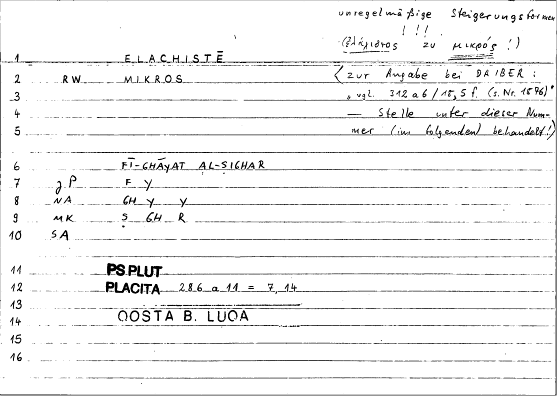 unregelmäßige Steigerungsformen
! ! !
(ἐλάχιστος zu μικρός !)
1 ELACHISTĒ
2 RW MIKROS
< zur Angabe bei DAIBER :
3
" vgl. 312 a 6 / 15, 5 f. (s. Nr. 1876)"
4
— Stelle unter dieser Num-
5
mer (im folgenden) behandelt!)
6 FĪ-GHĀYAT AL-ṢIGHAR
7 g.P F Y
8 NA GH Y Y
9 MK Ṣ GH R
10 SA
11 PS PLUT
12 PLACITA 286 a 11 = 7, 14
13
14 QOSTA B. LUQA
15
16